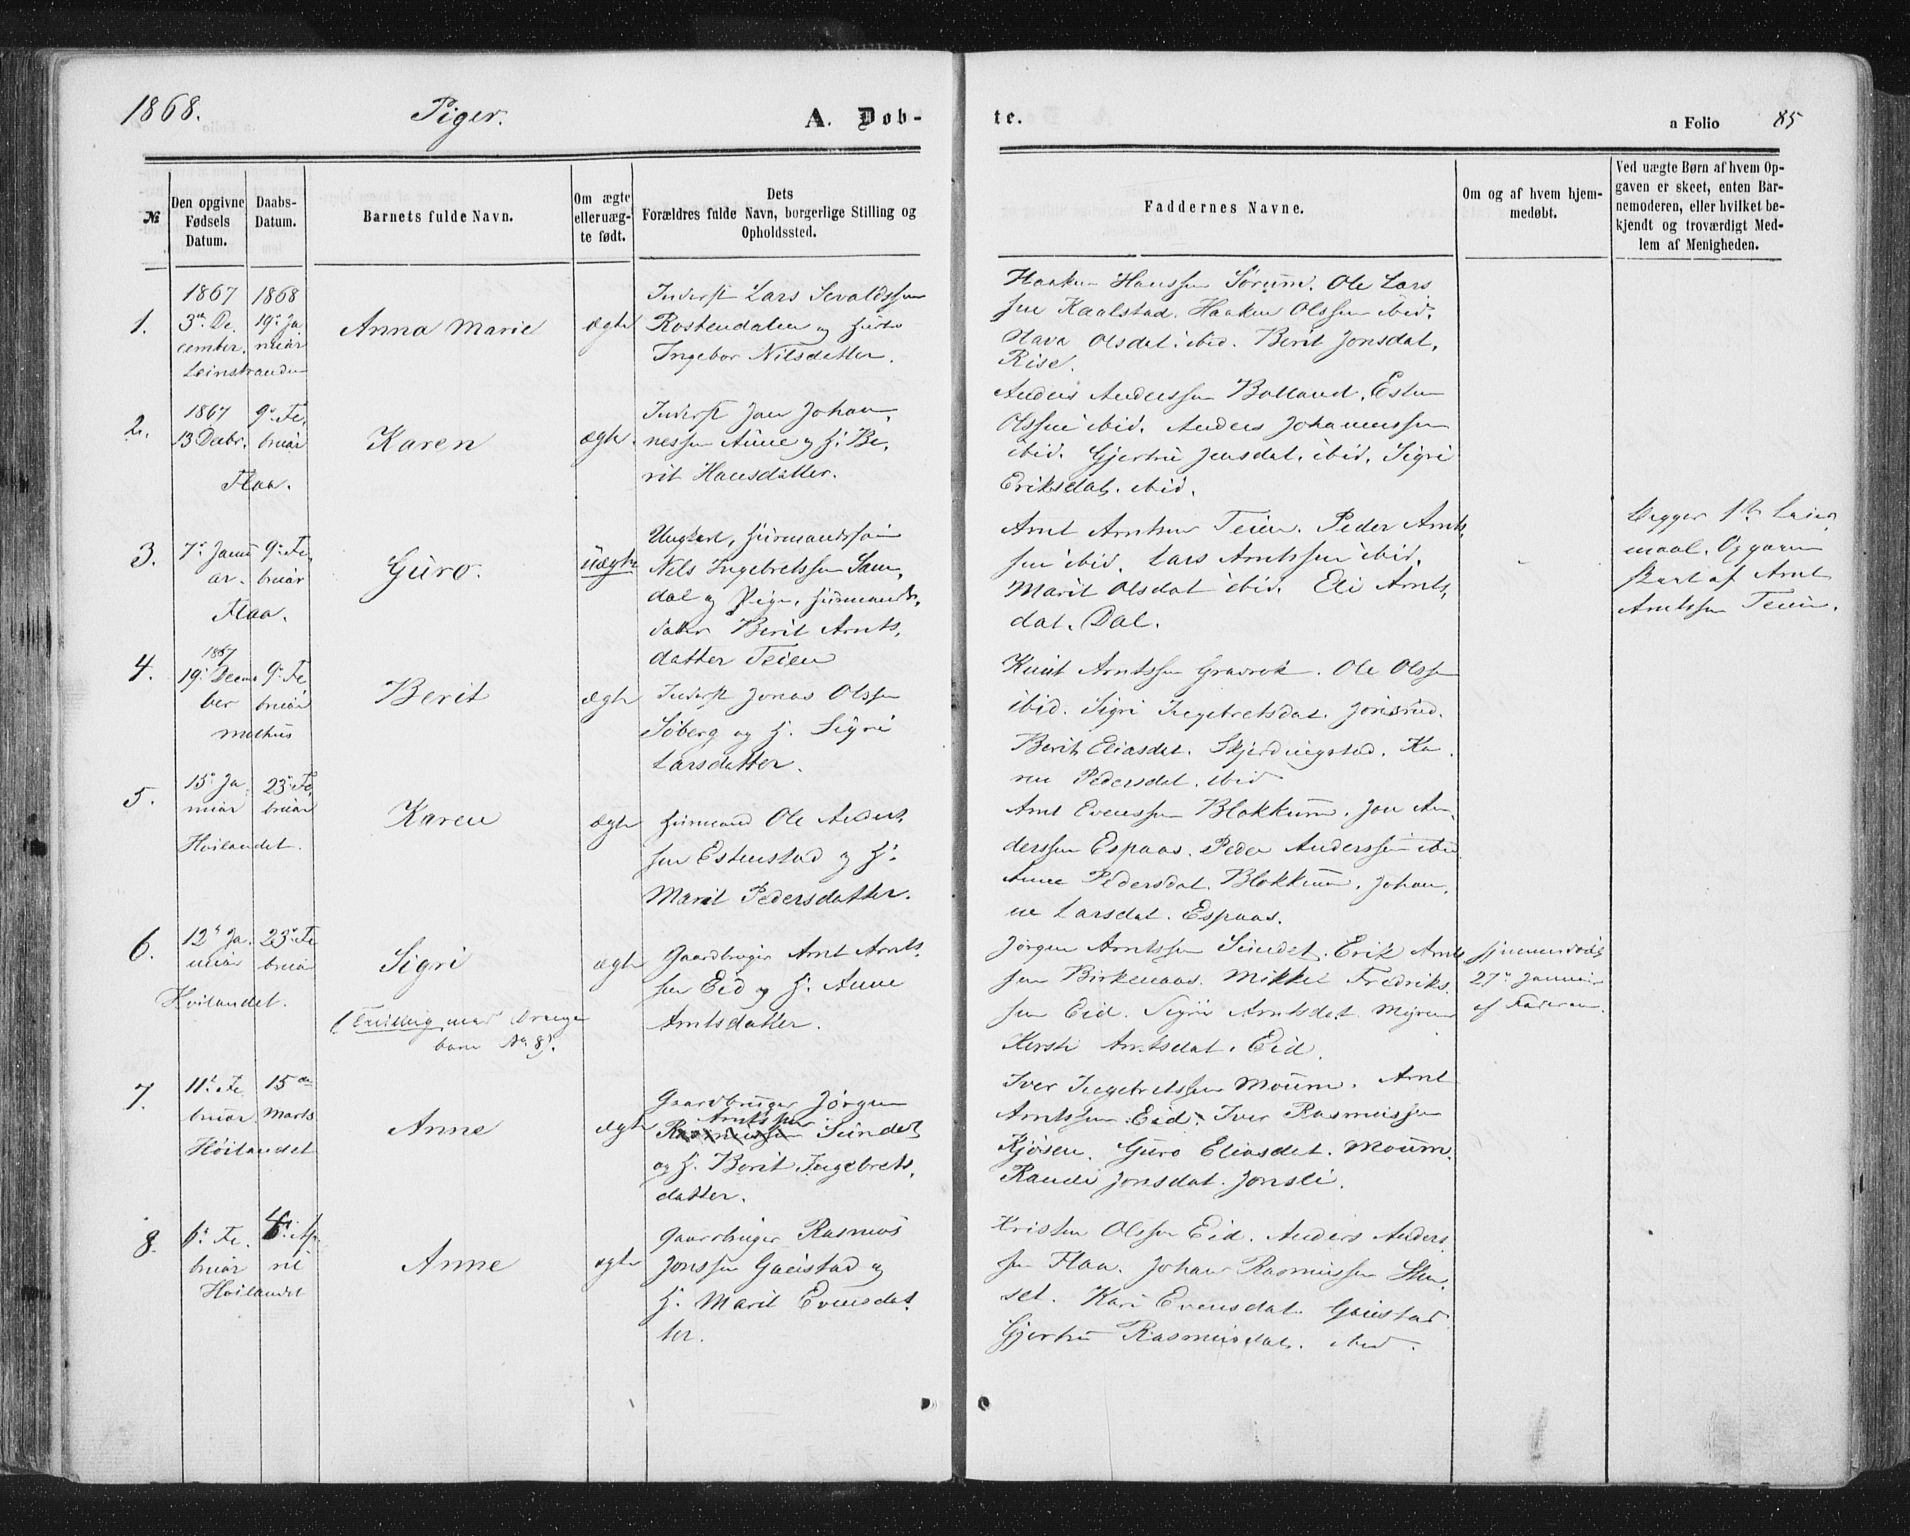 1868. Piger. A. Døb-
te. a Folio 85
№
Den opgivne Fødsels Datum.
Daabs-Datum.
Barnets fulde Navn.
Om ægte eller uægte født.
Dets
Forældres fulde Navn, borgerlige Stilling og
Opholdssted.
Faddernes Navne.
Om og af hvem hjem-
medøbt.
Ved uægte Børn af hvem Op-
gaven er skeet, enten Bar-
nemoderen, eller hvilket be-
kjendt og troværdigt Med-
lem af Menigheden.
1.
1867 1868
3de De 19de Ja
cember. nuar
Leinstranden
Anna Marie
ægte
Inderst Lars Sevaldssen
Rostendalen og Hustru
Ingebor Nilsdatter.
Haaken Hanssen Sørum. Ole Lars
sen Kaalstad. Haaken Olssen ibid.
Olava Olsdat. ibid. Berit Jonsdat.
Rise.
2.
1867 9de Fe
13 Decbr. bruar
Flaa.
Karen
ægte.
Inderst Jon Johan,
nessen Aune og H. Be,
rit Hansdatter.
Anders Anderssen Bolland. Esten
Olssen ibid. Anders Johannessen
ibid. Gjertru Jensdat. ibid. Sigri
Eriksdat. ibid.
3.
7de Janu 9de Fe
ar. bruar
Flaa.
Guro.
uægte
Ungkarl, Huusmandssøn
Nils Ingebretssen Sam,
dal og Pige, Huusmands,
datter Berit Arnts,
datter Teien
Arnt Arntsen Teien. Peder Arnt
sen ibid. Lars Arntssen ibid.
Marit Olsdat ibid. Eli Arnts,
dat. Dal.
Begges 1ste Leier
maal. Opgaven
skeet af Arnt
Arntssen Teien.
4.
1867
19de Decem 9de Fe
ber bruar
Melhus
Berit
ægte
Inderst Jonas Olssen
Søberg og H. Sigri
Larsdatter.
Knut Arntssen Gravrok. Ole Olssen
ibid. Sigri Ingebretsdat. Jonsrud.
Berit Eliasdat. Skjerdingstad. Ka
ren Pedersdat. ibid
5.
15de Ja 23de Fe
nuar bruar
Høilandet.
Karen
ægte
Huusmand Ole Anders,
sen Estenstad og H.
Marit Pedersdatter.
Arnt Evenssen Blokkum. Jon An,
derssen Espaas. Peder Anderssen ibid
Anne Pedersdat. Blokkum. Johan,
ne Larsdat. Espaas.
6.
12te Ja. 23de Fe
nuar bruar
Høilandet.
Sigri
(Tvilling med Drenge
barn No 8).
ægte
Gaardbruger Arnt Arnts,
sen Eid og H. Anne
Arntsdatter.
Jørgen Arntssen Sundet. Erik Arnts
sen Birkenaas. Mikkel Fredriks
sen Eid. Sigri Arntsdat. Myren
Kersti Arntsdat. Eid.
Hjemmedøbt
27de Januar
af Faderen.
7.
11te Fe 15de
bruar. Marts
Høilandet
Anne
ægte
Gaardbruger Jørgen
Arntssen
Rasmussen Sundet
og H. Berit Ingebrets,
datter.
Iver Ingebretssen Moum. Arnt
Arntssen Eid. Iver Rasmussen
Kjøsen. Guro Eliasdat. Moum.
Randi Jonsdat. Jonsli.
8.
6te Fe. 4de Ap
bruar ril
Høilandet
Anne
ægte
Gaardbruger Rasmus
Jonssen Gaustad og
H. Marit Evensdat
ter.
Kristen Olssen Eid. Anders Anders
sen Flaa. Johan Rasmussen
set. Kari Evensdat. Gaustad
Gjertru Rasmusdat. ibid.